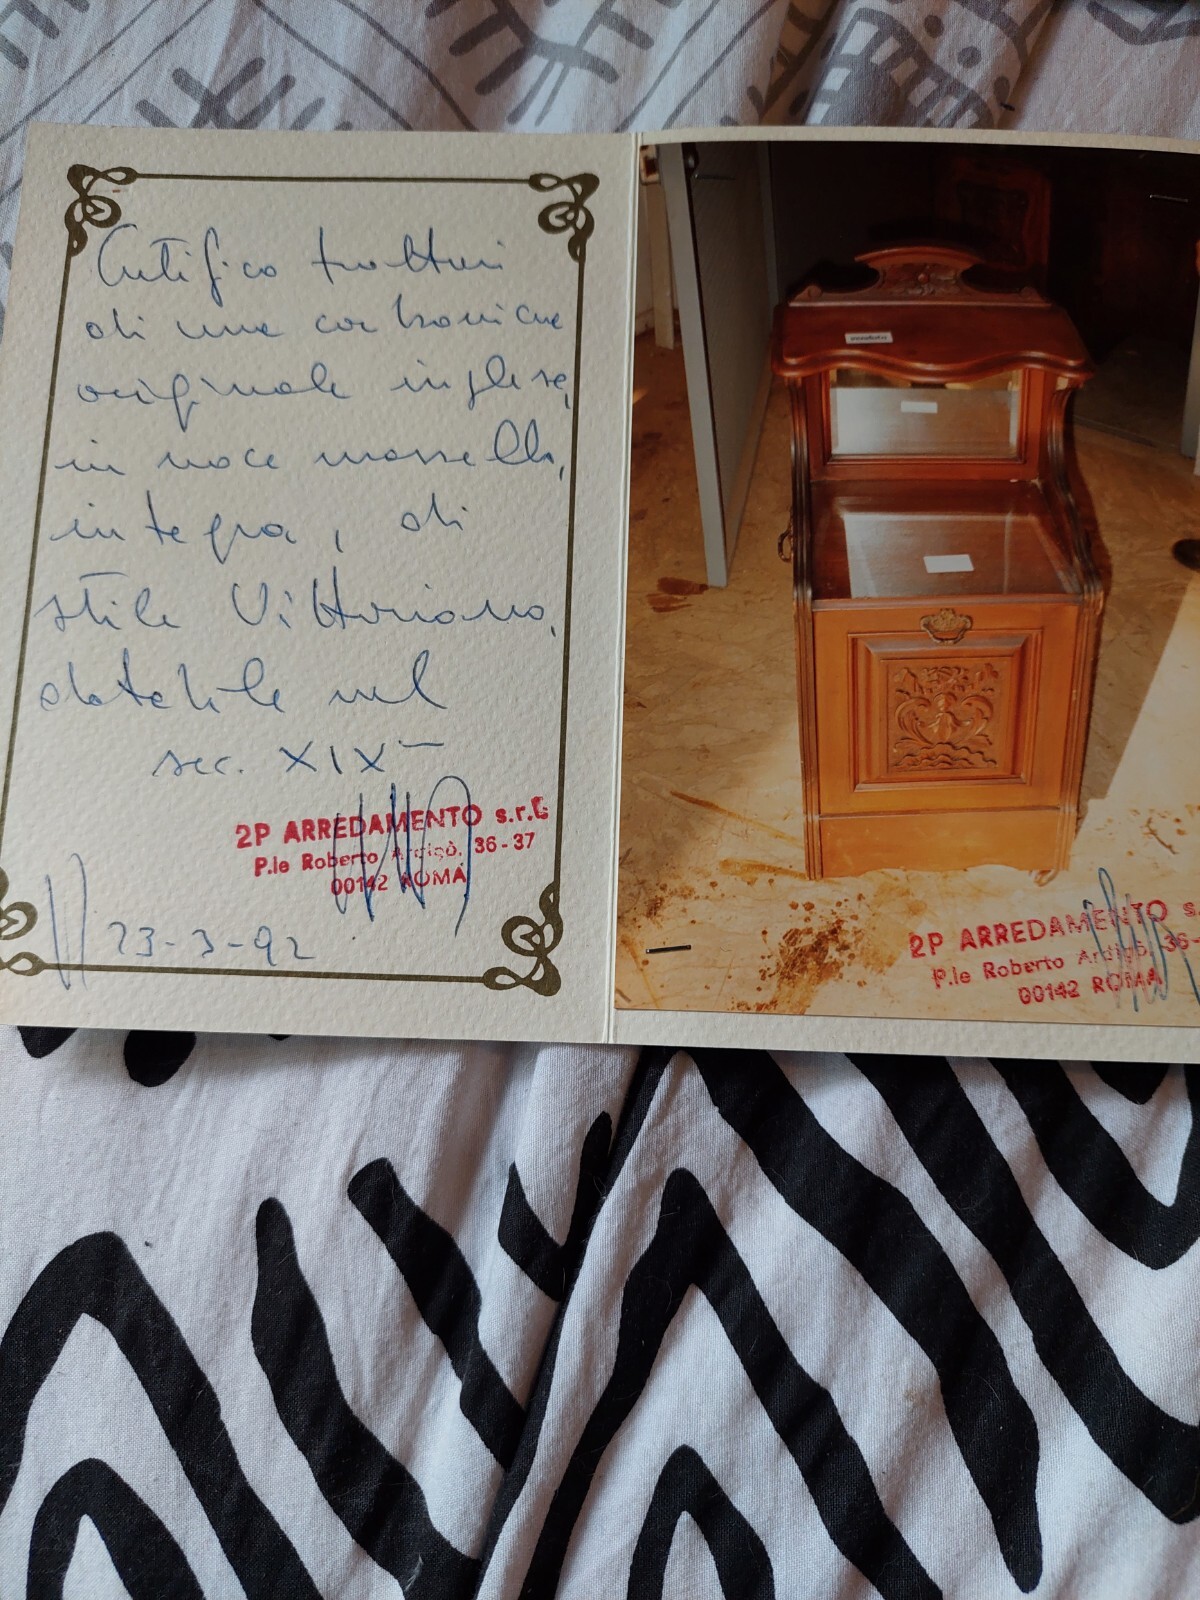 Certifico trattarsi
di una carboniera
originale inglese,
in noce massello,
integra, di
stile Vittoriano,
databile nel
sec. XIX
2P ARREDAMENTO s.r.l.
P.le Roberto Ardigò, 36-37
00142 ROMA
23-3-92
2P ARREDAMENTO s.
P.le Roberto Ardigò, 36-
00142 ROMA